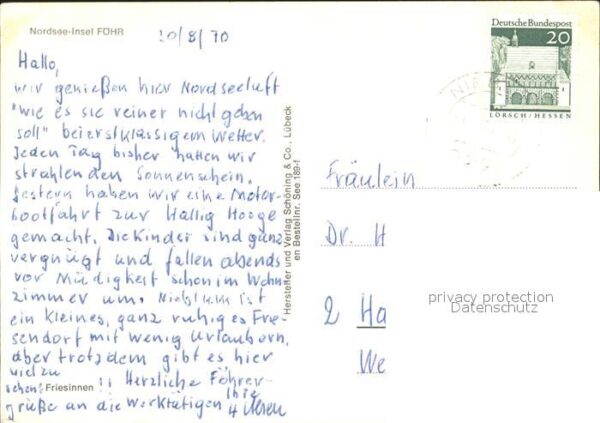 Nordsee-Insel FÖHR
20/8/70
Hallo,
wir genießen hier Nordseeluft
"wie es sie reiner nicht geben
soll" bei erstklassigem Wetter.
Jeden Tag bisher hatten wir
strahlenden Sonnenschein.
Gestern haben wir eine Motor-
bootfahrt zur Hallig Hooge
gemacht. Die Kinder sind ganz
vergnügt und fallen abends
vor Müdigkeit schon im Wohn
zimmer um. Nieblum ist
ein kleines, ganz ruhiges Frie-
sendorf mit wenig Urlaubern,
aber trotzdem gibt es hier
viel zu
sehen!
Friesinnen
!! Herzliche Föhrer-
grüße an die Werktätigen
Ihre
Hersteller und Verlag Schöning & Co., Lübeck
en Bestellnr. See 189-f
Deutsche Bundespost
20
LORSCH/HESSEN
Fräulein
Dr. H
2 Ha
We
privacy protection
Datenschutz